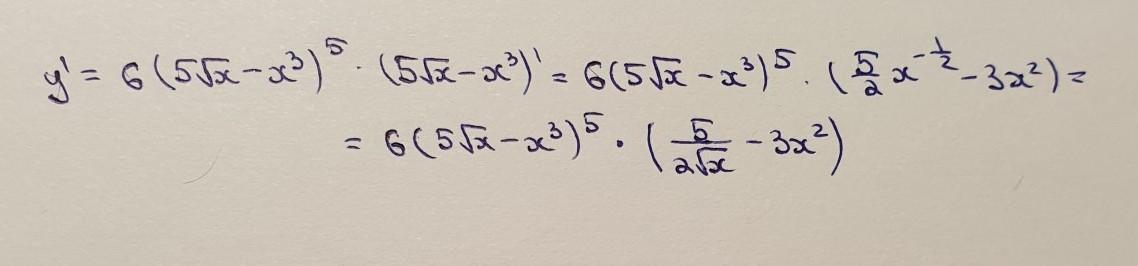 y' = 6(5√x - x³)⁵ · (5√x - x³)' = 6(5√x - x³)⁵ · (5/2 x^(-1/2) - 3x²) =
= 6(5√x - x³)⁵ · (5/(2√x) - 3x²)